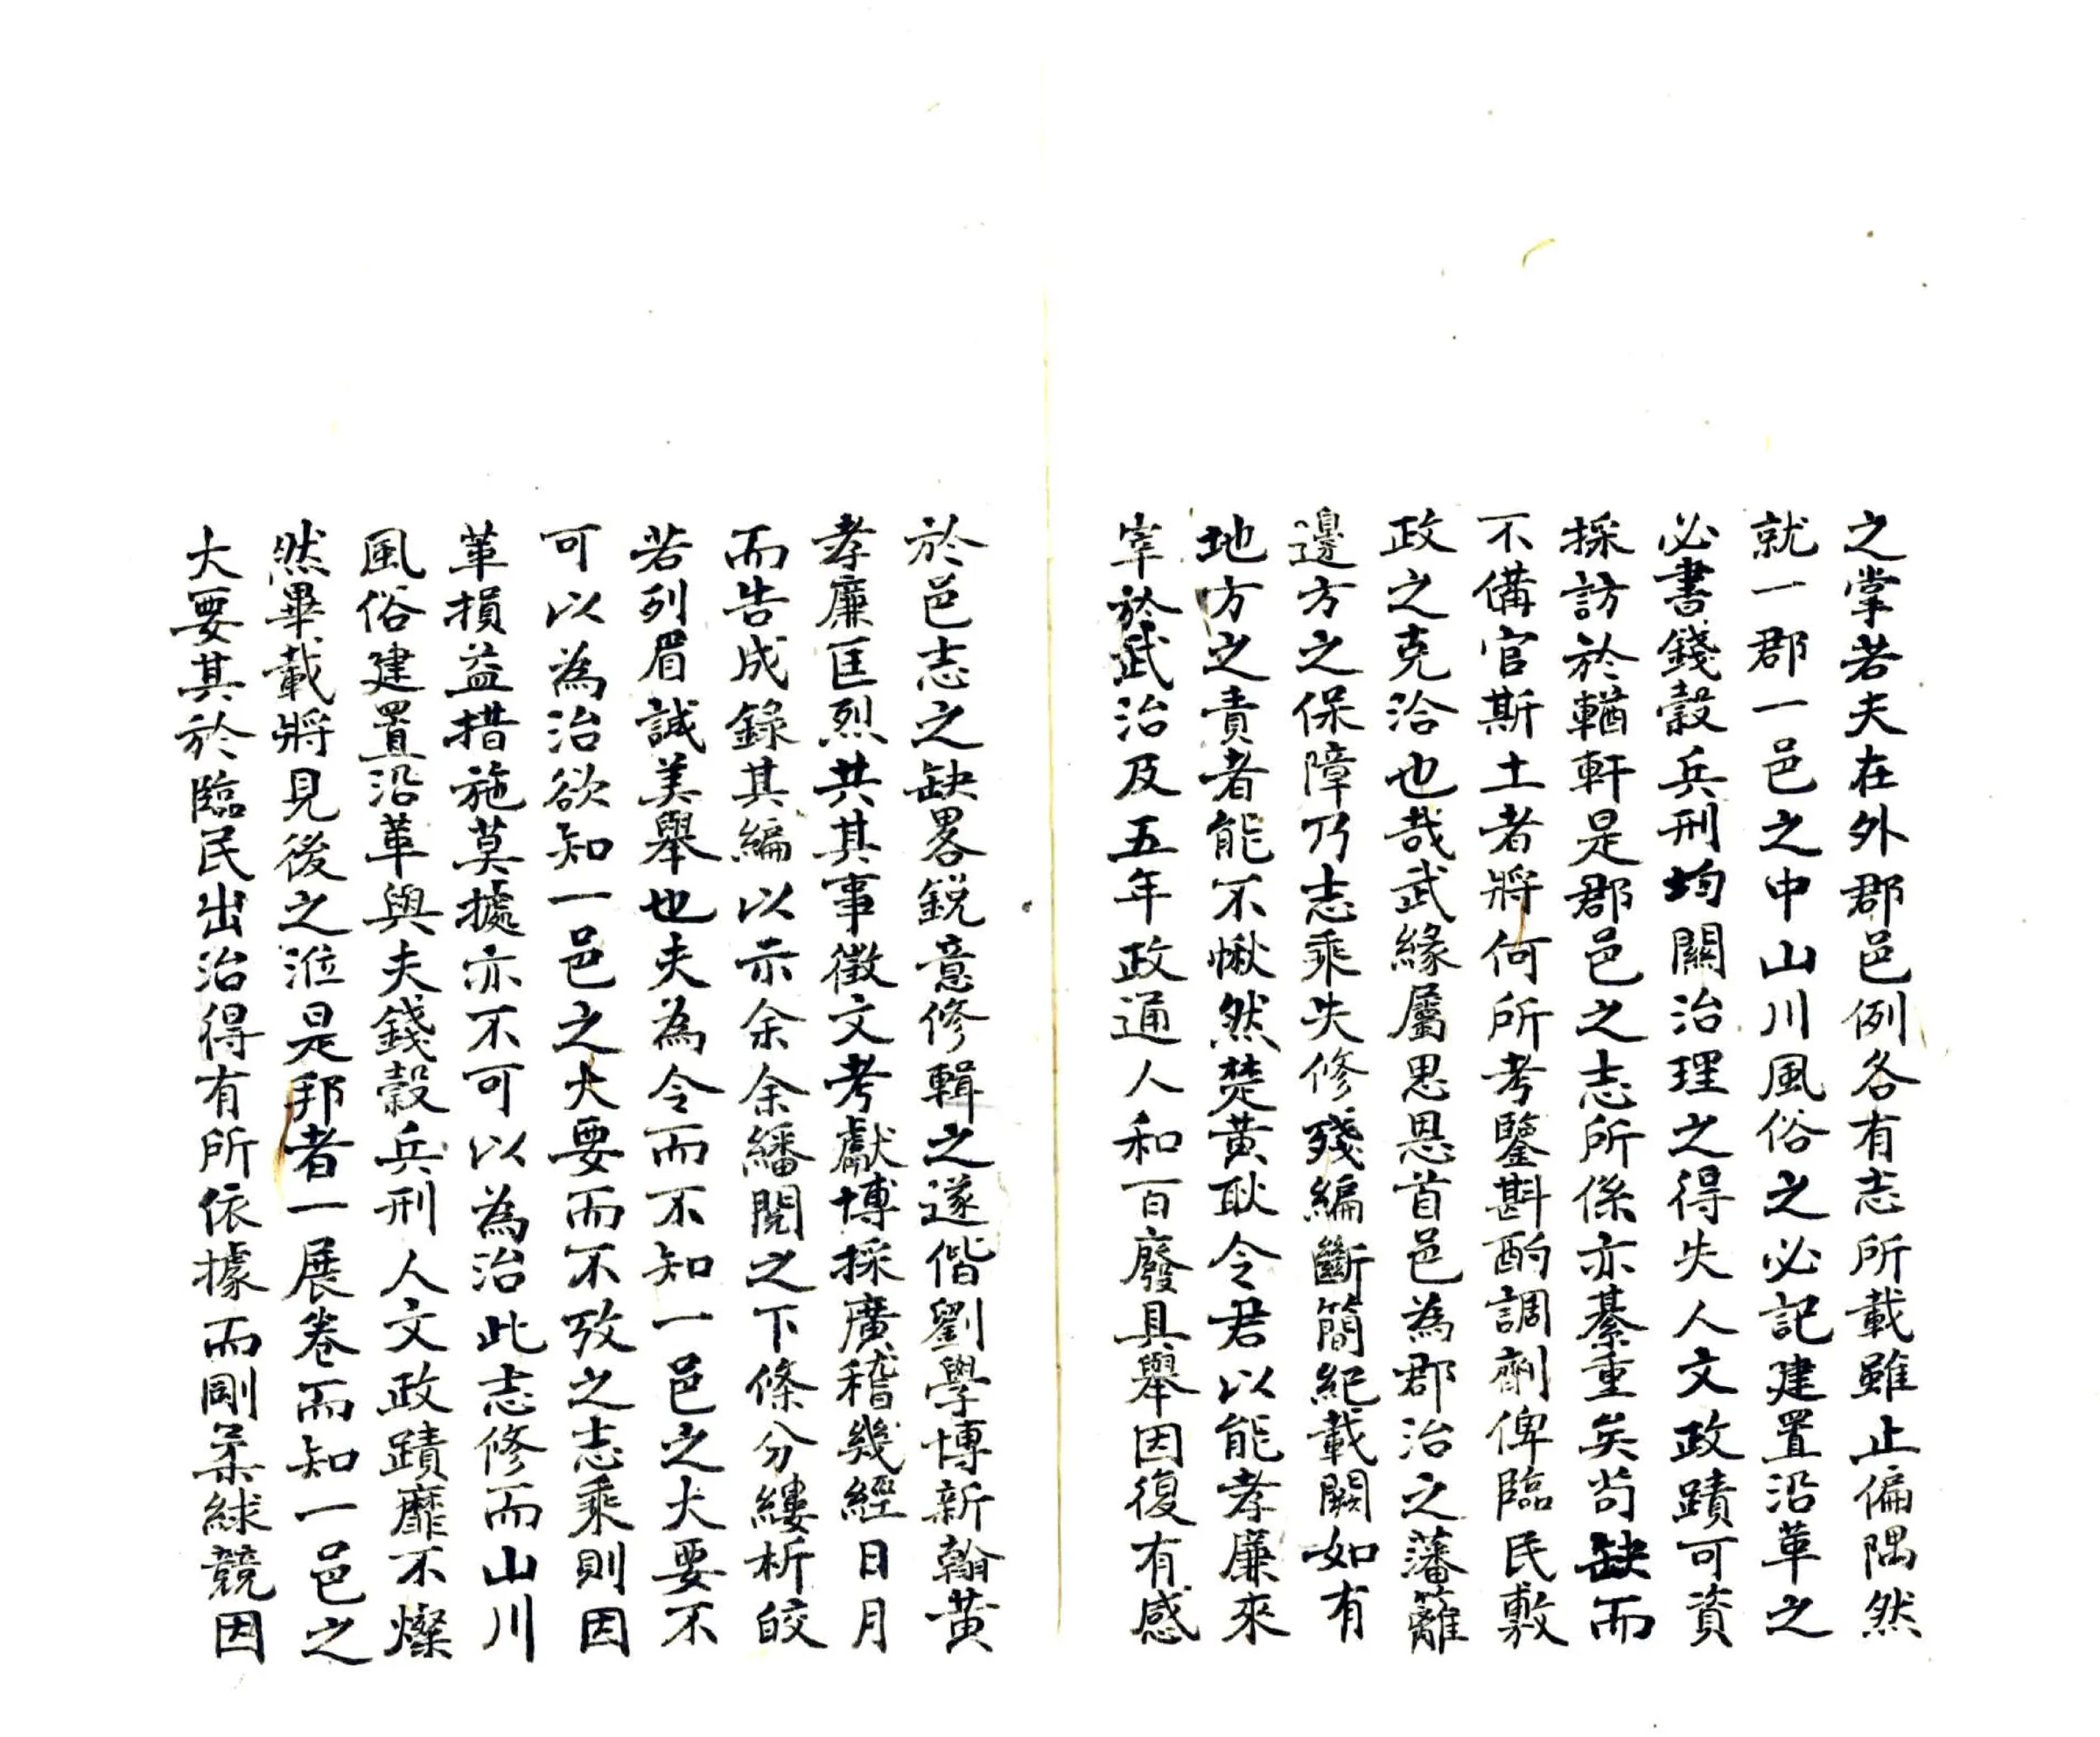 之掌若夫在外郡邑例各有志所載雖止偏隅然
就一郡一邑之中山川風俗之必記建置沿革之
必書錢穀兵刑均關治理之得失人文政蹟可資
採訪於輶軒是郡邑之志所係亦綦重矣茍缺而
不備官斯土者將何所考鑒斟酌調劑俾臨民敷
政之克洽也哉武緣屬思恩首邑為郡治之藩籬
邊方之保障乃志乘失修殘編斷簡紀載闕如有
地方之責者能不愀然焚黃耿令君以能孝廉來
宰於武治及五年政通人和百廢具舉因復有感
於邑志之缺畧銳意修輯之遂偕劉學博新翰黃
孝廉匡烈共其事徵文考獻博採廣稽幾經日月
而告成錄其編以示余余繙閱之下條分縷析皎
若列眉誠美舉也夫為令而不知一邑之大要不
可以為治欲知一邑之大要而不攷之志乘則因
革損益措施莫據亦不可以為治此志修而山川
風俗建置沿革與夫錢穀兵刑人文政蹟靡不燦
然畢載將見後之涖是邦者一展卷而知一邑之
大要其於臨民出治得有所依據而剛柔絿競因